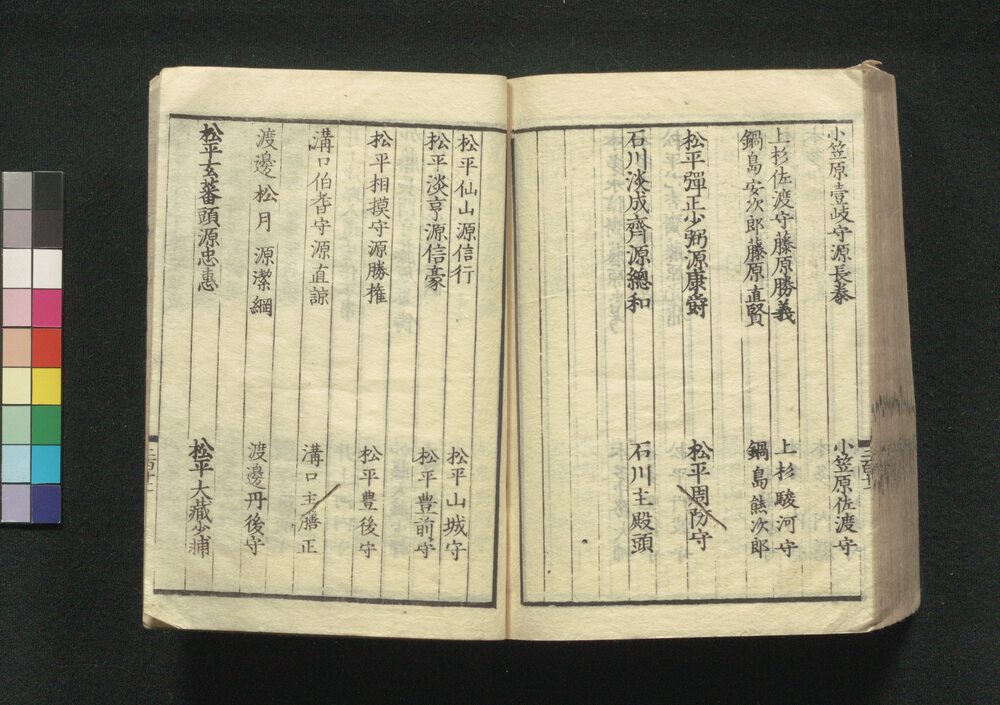 小笠原壹岐守源長泰
小笠原佐渡守
上杉佐渡守藤原勝義
上杉駿河守
鍋島安次郎藤原直賢
鍋島熊次郎
松平彈正少弼源康爵
松平周防守
石川淡成齊源總和
石川主殿頭
松平仙山源信行
松平山城守
松平淡亨源信豪
松平豊前守
松平相摸守源勝権
松平豊後守
溝口伯耆守源直諒
溝口主膳正
渡邊松月源潔綱
渡邊丹後守
松平玄蕃頭源忠惠
松平大藏少輔